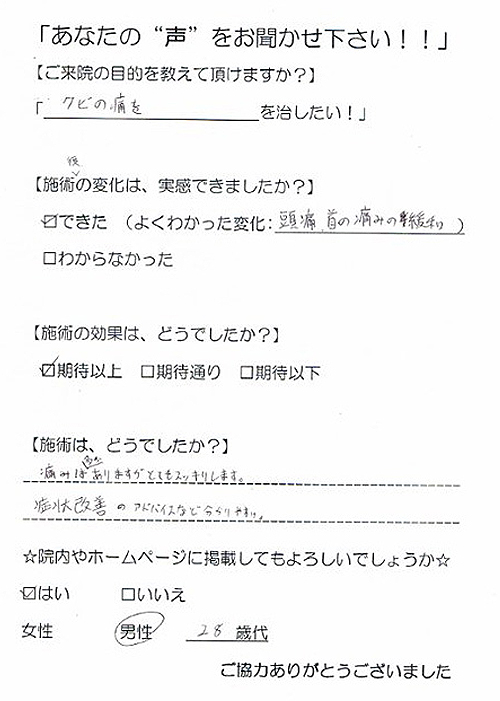 「あなたの“声”をお聞かせ下さい！！」
【ご来院の目的を教えて頂けますか？】
「クビの痛を を治したい！」
後
【施術の変化は、実感できましたか？】
☑できた （よくわかった変化：頭痛、首の痛みの緩和）
□わからなかった
【施術の効果は、どうでしたか？】
☑期待以上 □期待通り □期待以下
【施術は、どうでしたか？】
痛みは ありますがとてもスッキリします。
症状改善のアドバイスなど分かりやすい。
☆院内やホームページに掲載してもよろしいでしょうか☆
☑はい □いいえ
女性 男性 28 歳代
ご協力ありがとうございました